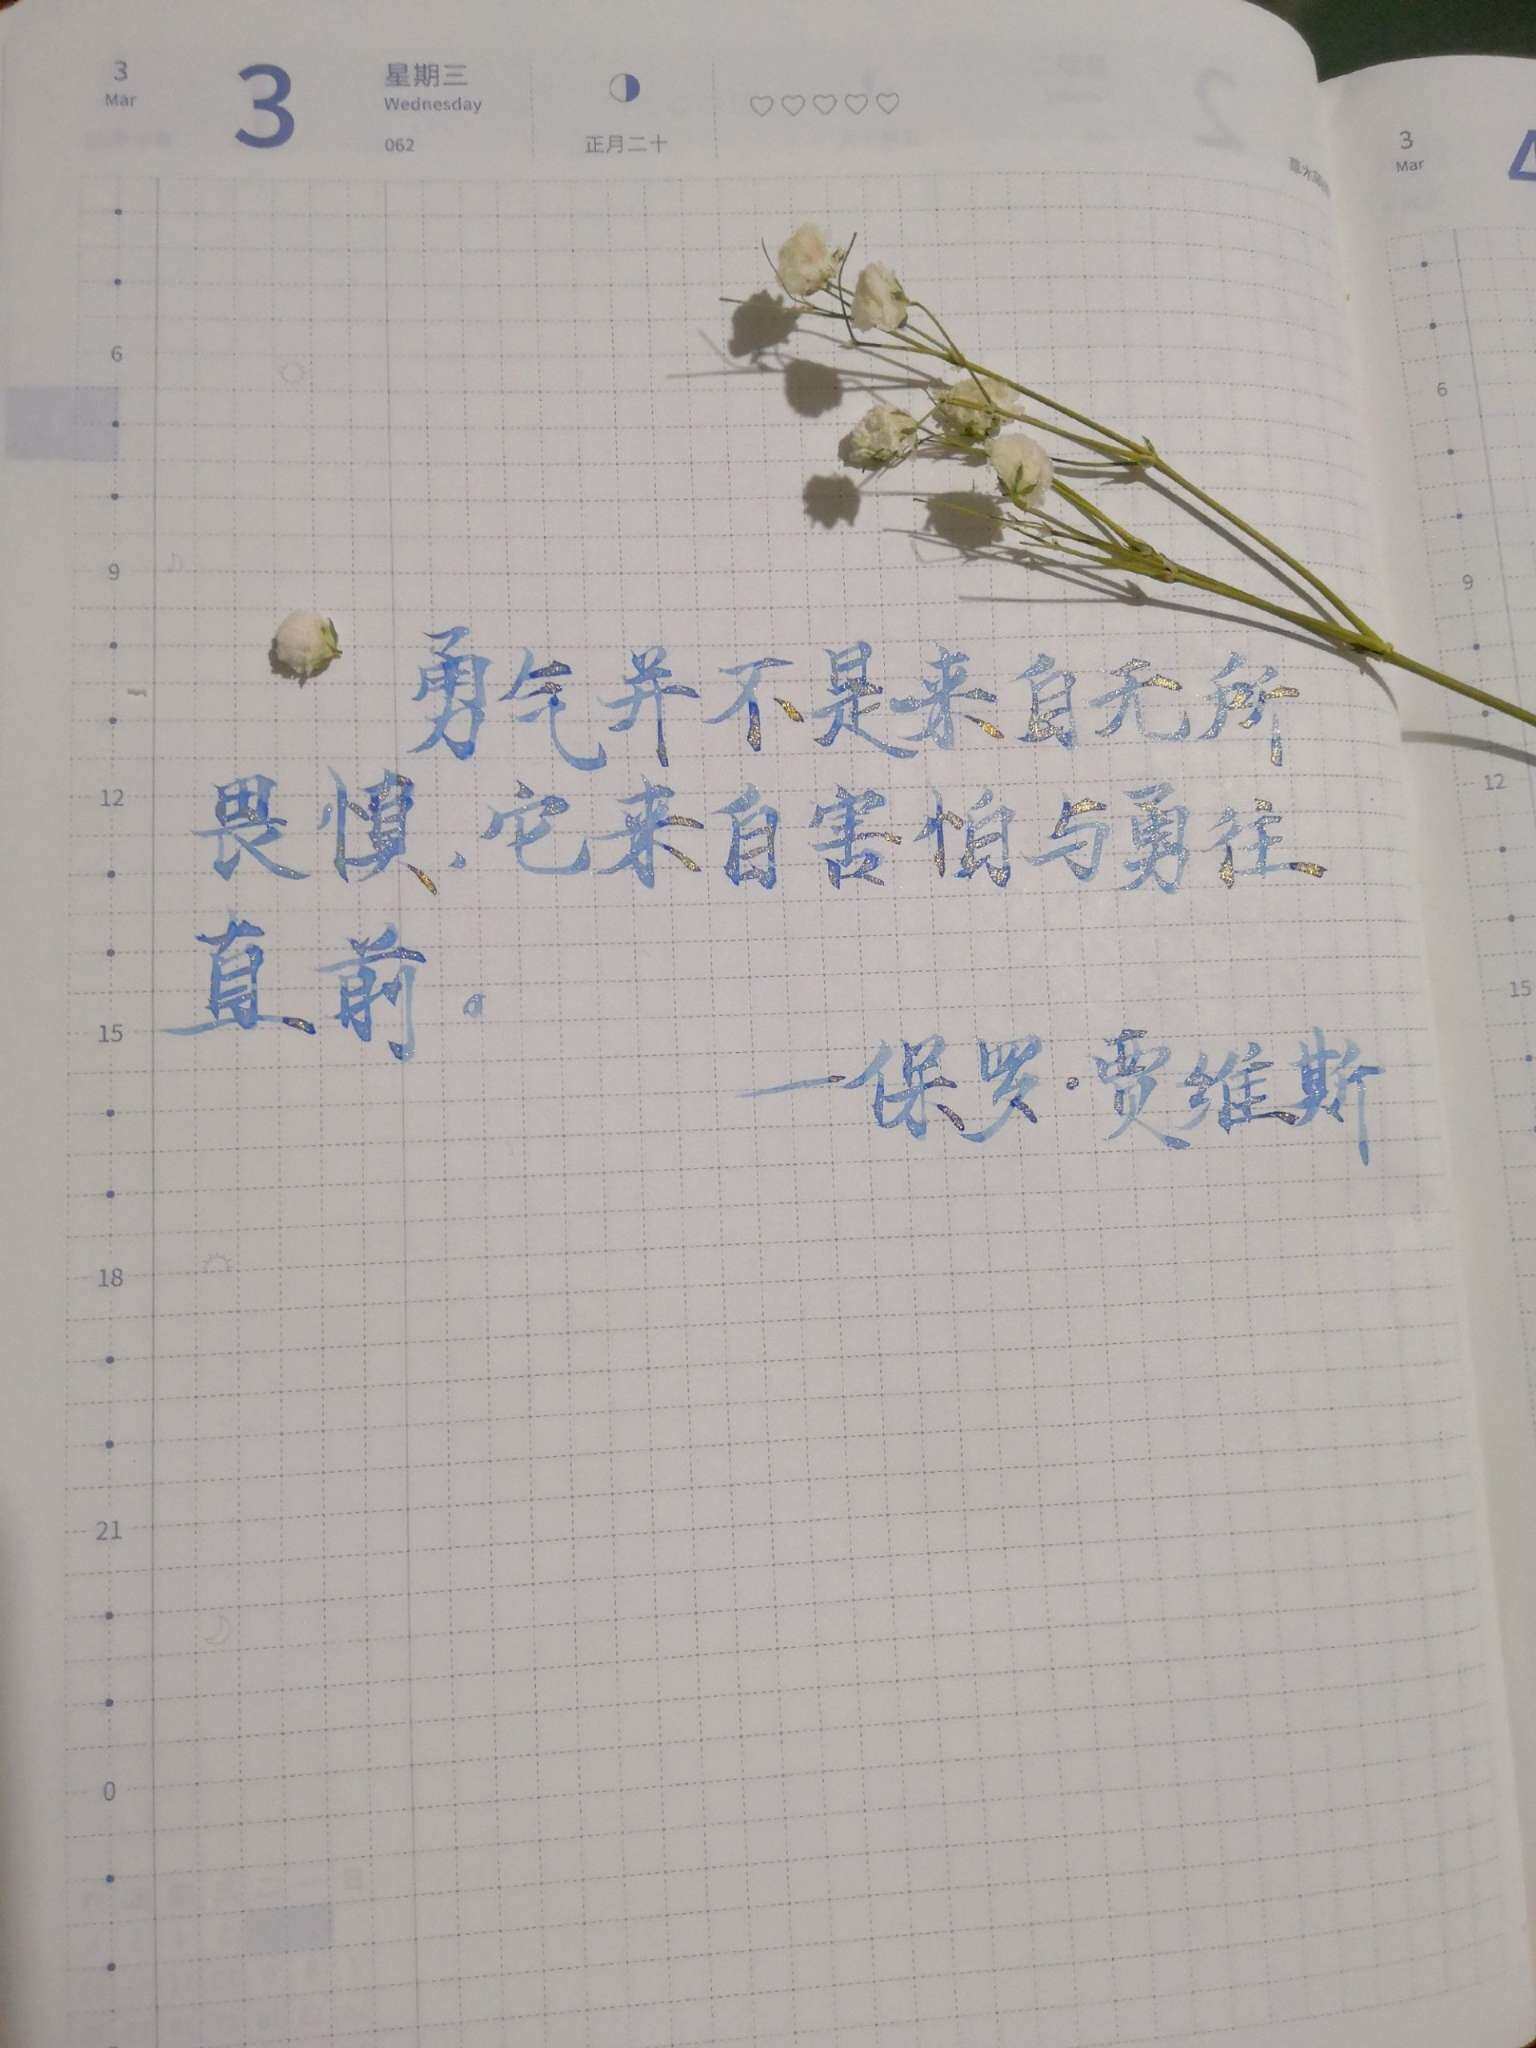 3
Mar
3
星期三
Wednesday
062
正月二十
3
Mar
6
9
12
15
18
21
0
勇气并不是来自无所
畏惧,它来自害怕与勇往
直前。
—保罗·贾维斯
6
9
12
15